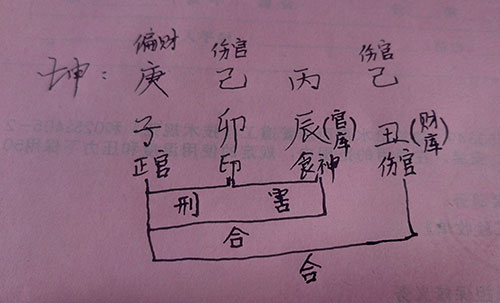 偏财 伤官 伤官
坤: 庚 己 丙 己
子 卯 辰(官库) 丑(财库)
正官 印 食神 伤官
刑 害
合
合